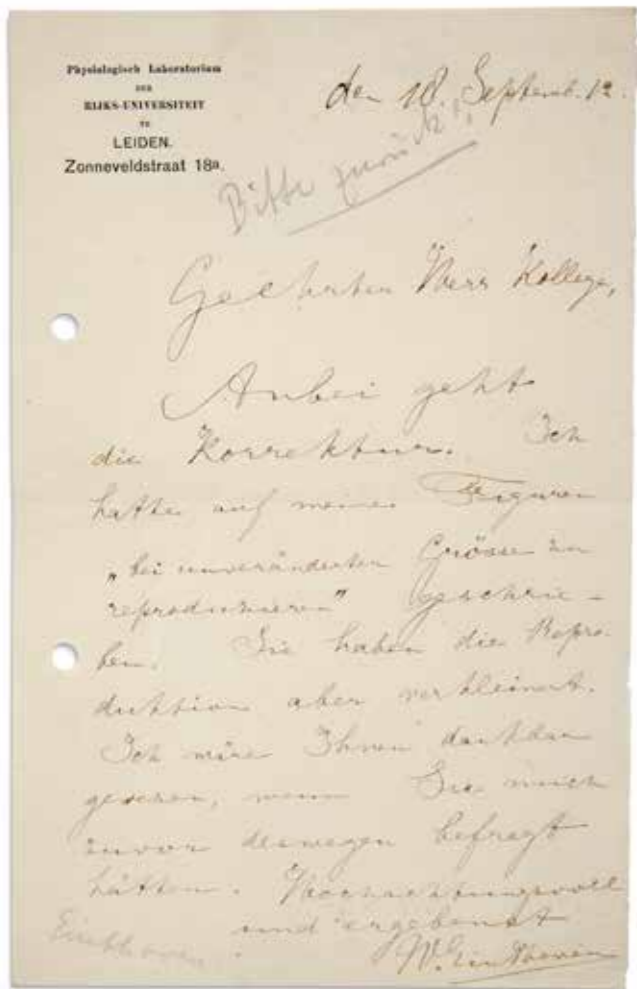 Physiologisch Laboratorium
DER
RIJKS-UNIVERSITEIT
TE
LEIDEN.
Zonneveldstraat 18a.
den 18. Septemb. 12.
Bitte zurück!
Geehrter Herr Kollege,
Anbei geht
die Korrektur. Ich
hatte auf meinen Figuren
„bei unveränderter Grösse zu
reproduzieren" geschrie-
ben. Sie haben die Repro-
duktion aber verkleinert.
Ich wäre Ihnen dankbar
gewesen, wenn Sie mich
zuvor deswegen befragt
hätten. Hochachtungsvoll
und ergebenst
W. Einthoven
Einthoven